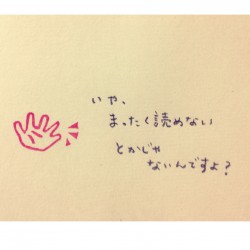 いや、
まったく読めない
とかじゃ
ないんですよ?